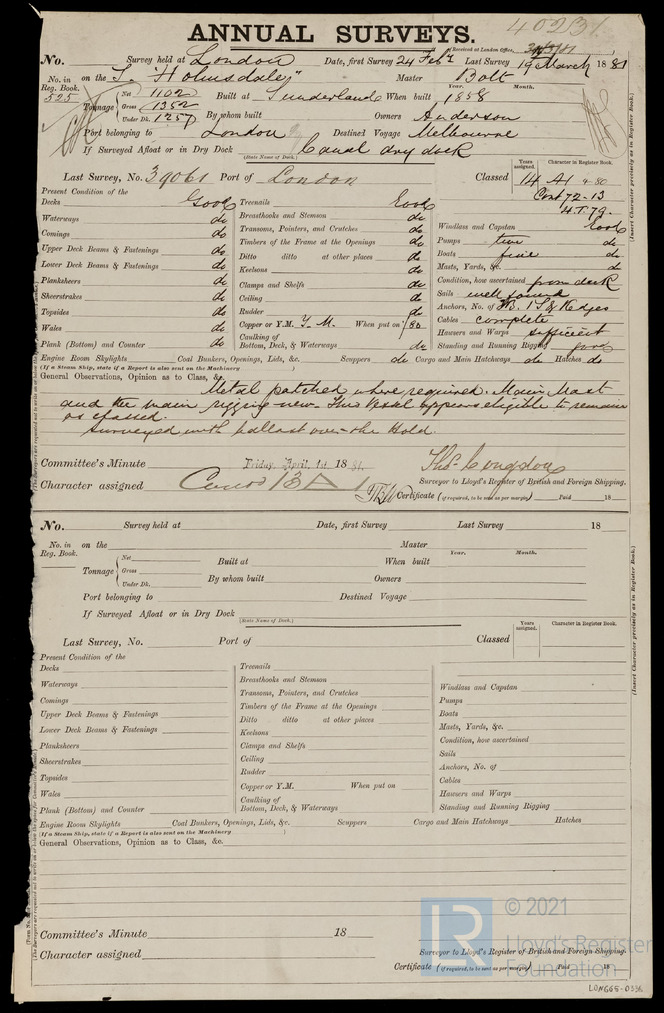 40231
ANNUAL SURVEYS.
(Received at London Office,
No. Survey held at London Date, first Survey 24 Feby Last Survey 19 March 1881
No. in Reg. Book. 525 on the S. "Holmsdale" Master Bolt
Tonnage Net 1102 Gross 1352 Under Dk. 1257
Built at Sunderland When built Year. 1858 Month.
By whom built Owners Anderson
Port belonging to London Destined Voyage Melbourne
If Surveyed Afloat or in Dry Dock Canal dry dock
(State Name of Dock.)
Last Survey, No. 39061 Port of London Classed Years assigned. 14 Character in Register Book. A1 4-80
Cont 72-13
4.T.79.
(Insert Character precisely as in Register Book.)
Present Condition of the
Decks Good
Waterways do
Comings do
Upper Deck Beams & Fastenings do
Lower Deck Beams & Fastenings do
Planksheers do
Sheerstrakes do
Topsides do
Wales do
Plank (Bottom) and Counter do
Treenails Good
Breasthooks and Stemson do
Transoms, Pointers, and Crutches do
Timbers of the Frame at the Openings do
Ditto ditto at other places do
Keelsons do
Clamps and Shelfs do
Ceiling do
Rudder do
Copper or Y.M. Y. M. When put on 1/80
Caulking of Bottom, Deck, & Waterways do
Windlass and Capstan Good
Pumps two do
Boats five do
Masts, Yards, &c. do
Condition, how ascertained from deck
Sails well found
Anchors, No. of 3B. 1S & Kedges
Cables complete
Hawsers and Warps sufficient
Standing and Running Rigging good
Engine Room Skylights Coal Bunkers, Openings, Lids, &c. Scuppers do Cargo and Main Hatchways do Hatches do
(If a Steam Ship, state if a Report is also sent on the Machinery )
General Observations, Opinion as to Class, &c.
Metal patched where required. Main Mast
and the main rigging new. This Vessel appears eligible to remain
as classed.
Surveyed with ballast over the Hold.
Committee's Minute Friday, April 1st 1881.
Thos. Congdon
Surveyor to Lloyd's Register of British and Foreign Shipping.
Character assigned
Certificate (if required, to be sent as per margin) Paid 18
No. Survey held at Date, first Survey Last Survey 18
No. in Reg. Book. on the Master
Tonnage Net Gross Under Dk.
Built at When built Year. Month.
By whom built Owners
Port belonging to Destined Voyage
If Surveyed Afloat or in Dry Dock
(State Name of Dock.)
Last Survey, No. Port of Classed Years assigned. Character in Register Book.
(Insert Character precisely as in Register Book.)
Present Condition of the
Decks
Waterways
Comings
Upper Deck Beams & Fastenings
Lower Deck Beams & Fastenings
Planksheers
Sheerstrakes
Topsides
Wales
Plank (Bottom) and Counter
Treenails
Breasthooks and Stemson
Transoms, Pointers, and Crutches
Timbers of the Frame at the Openings
Ditto ditto at other places
Keelsons
Clamps and Shelfs
Ceiling
Rudder
Copper or Y.M. When put on
Caulking of Bottom, Deck, & Waterways
Windlass and Capstan
Pumps
Boats
Masts, Yards, &c.
Condition, how ascertained
Sails
Anchors, No. of
Cables
Hawsers and Warps
Standing and Running Rigging
Engine Room Skylights Coal Bunkers, Openings, Lids, &c. Scuppers Cargo and Main Hatchways Hatches
(If a Steam Ship, state if a Report is also sent on the Machinery )
General Observations, Opinion as to Class, &c.
Committee's Minute 18
Character assigned
Surveyor to Lloyd's Register of British and Foreign Shipping.
Certificate (if required, to be sent as per margin) Paid 18
LR © 2021
Lloyd's Register
Foundation
LON665-0336